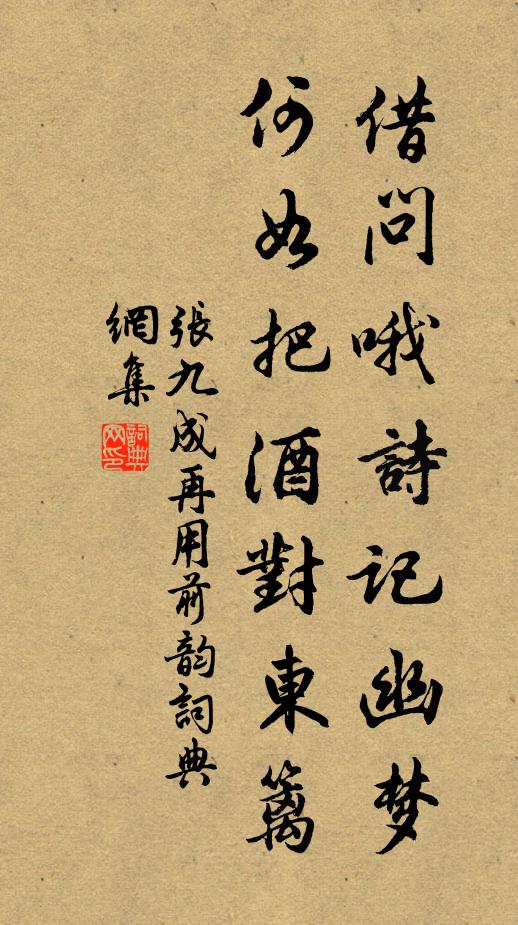 借问哦詩记幽梦
何如把酒對東籬
張九成再用前韵詞典
網集
詞典网印